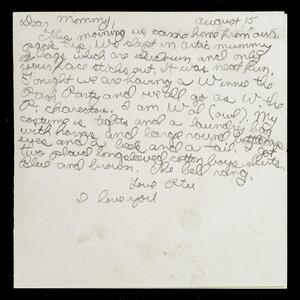 Dear Mommy, August 15
This morning we came home from our
pack trip. We slept in artic mummy
bags which are eiderdown and only
your face sticks out. It was neat fun.
Tonight we are having a Winnie the
Pooh Party and we all go as W. the
P. charectors. I am Wol (owl). My
costume is tights and a laundry bag
with horns and large round
eyes and a beak and a tail. I got
two plaid longsleeved cotton boys shirts
Blue and brown. The bell rang.
Love
I love you!